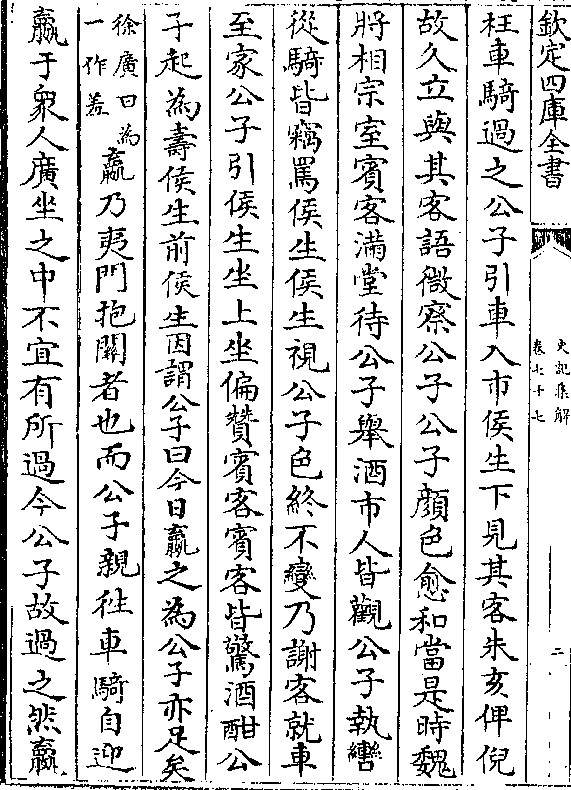 欽定四庫全書
史記集解
卷七十七
二
枉車騎過之公子引車入市侯生下見其客朱亥俾倪
故久立與其客語微察公子公子顔色愈和當是時魏
將相宗室賓客滿堂待公子舉酒市人皆觀公子執轡
從騎皆竊罵侯生侯生視公子色終不變乃謝客就車
至家公子引侯生坐上坐徧贊賓客賓客皆驚酒酣公
子起為壽侯生前侯生因謂公子曰今日嬴之為公子亦足矣
徐廣曰為
一作羞
嬴乃夷門抱關者也而公子親枉車騎自迎
嬴于衆人廣坐之中不宜有所過今公子故過之然嬴